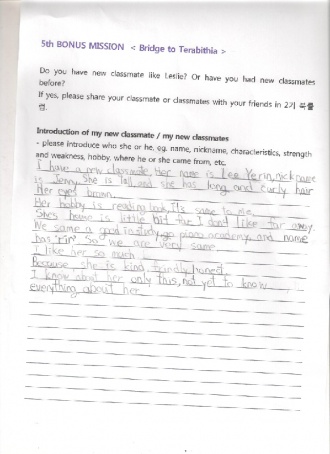 5th BONUS MISSION < Bridge to Terabithia >
Do you have new classmate like Leslie? Or have you had new classmates
before?
If yes, please share your classmate or classmates with your friends in 2기 북클
럽.
Introduction of my new classmate / my new classmates
- please introduce who she or he, eg. name, nickname, characteristics, strength
and weakness, hobby, where he or she came from, etc.
I have a new classmate. Her name is Lee Yerin, nick name
is Jenny. She is Tall, and she has long and curly hair
Her eyes brown.
Her hobby is reading book. It's same to me.
She's house is little bit far I don't like far away.
We same a good is study, go piano academy, and name
has 'rin' So we are very same.
I like her so much
Because she is kind, friendly, honest.
I know about her only this, not yet to know
everything about her.